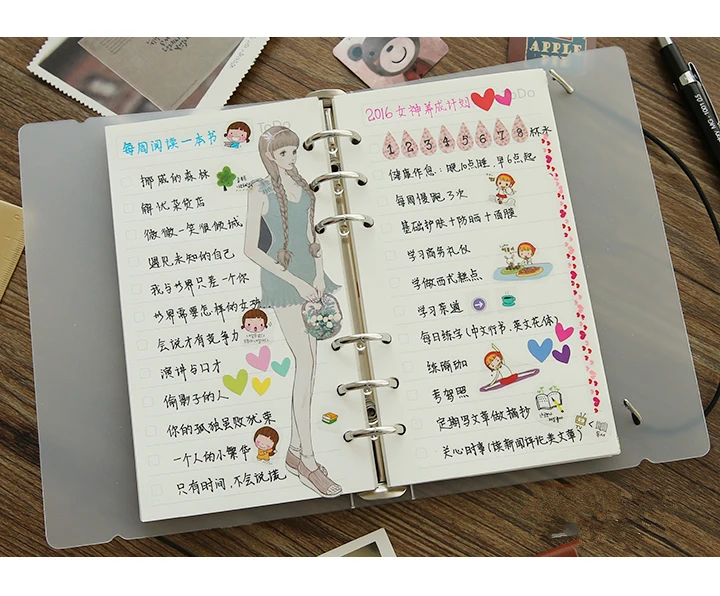 ToDo
每周阅读一本书
挪威的森林
解忧杂货店
微微一笑很倾城
遇见未知的自己
我与世界只差一个你
世界需要怎样的女孩
会说才有竞争力
演讲与口才
偷影子的人
你的孤独虽败犹荣
一个人的小繁华
只有时间,不会说谎
ToDo
2016女神养成计划
1 2 3 4 5 6 7 8 杯水
健康作息:晚10点睡,早6点起
每周慢跑3次
基础护肤+防晒+面膜
学习商务礼仪
学做西式糕点
学习茶道
每日练字(中文行书,英文花体)
练瑜珈
考驾照
定期写文章做摘抄
关心时事(读新闻评论类文章)
APPLE